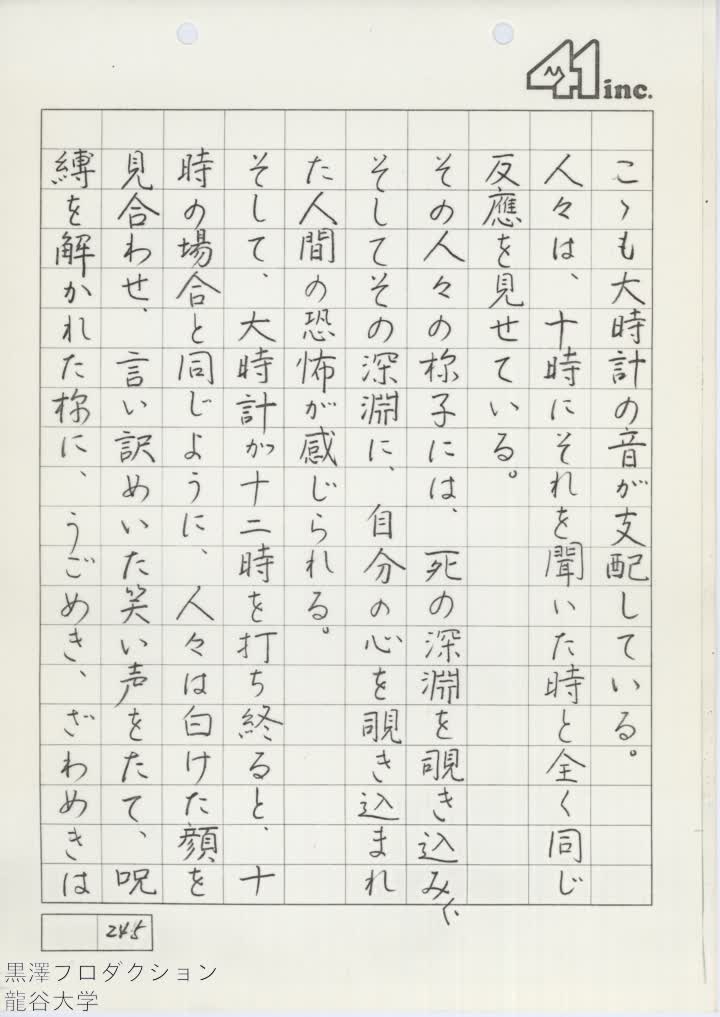 41 inc.
こゝも大時計の音が支配している。
人々は、十時にそれを聞いた時と全く同じ
反應を見せている。
その人々の様子には、死の深淵を覗き込み、
そしてその深淵に、自分の心を覗き込まれ
た人間の恐怖が感じられる。
そして、大時計が十二時を打ち終ると、十
時の場合と同じように、人々は白けた顔を
見合わせ、言い訳めいた笑い声をたて、呪
縛を解かれた様に、うごめき、ざわめきは
245
黒澤プロダクション
龍谷大学